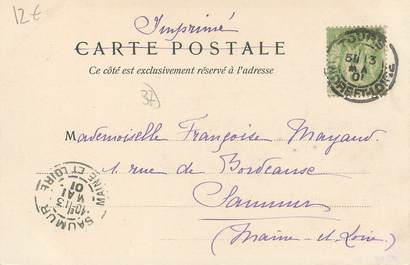 12€
Imprimé
CARTE POSTALE
Ce côté est exclusivement réservé à l'adresse
37
TOURS
13
MAI
01
INDRE-ET-LOIRE
Mademoiselle Françoise Mayaud
1 rue de Bordeaux
Saumur
(Maine-et-Loire)
SAUMUR
MAINE ET LOIRE
13
MAI
01